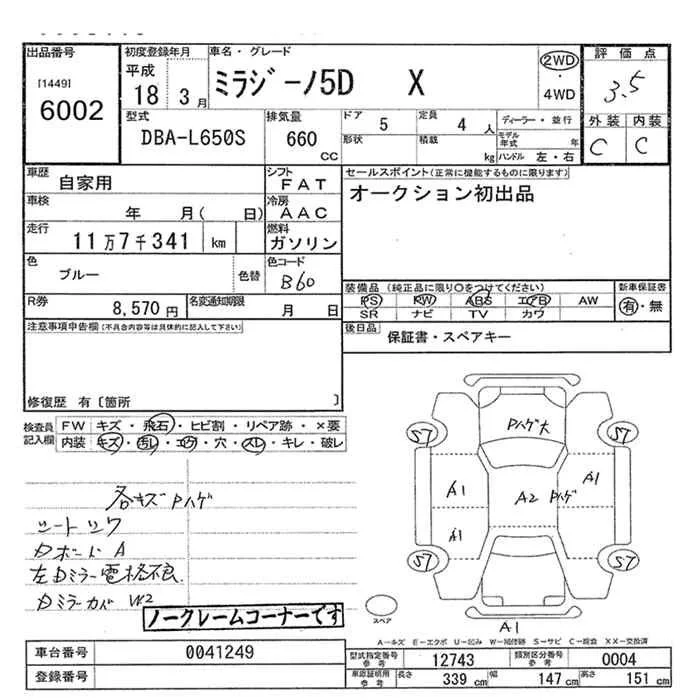 出品番号
[1449]
6002
初度登録年月
平成
18 3月
車名・グレード
ミラジーノ5D X
2WD
・
4WD
評価点
3.5
外装 内装
C C
型式
DBA-L650S
排気量
660
CC
ドア
5
定員
4 人
形状
積載
kg
ディーラー・並行
モデル年式 年
ハンドル 左・右
車歴
自家用
シフト
FAT
車検
年 月( 日)
冷房
AAC
走行
11万7千341 km
燃料
ガソリン
色
ブルー
色替
色コード
B60
R券
8,570 円
名変通知期限
月 日
セールスポイント(正常に機能するものに限ります)
オークション初出品
装備品 (純正品に限り○をつけてください)
PS PW ABS エアB AW
SR ナビ TV カワ
新車保証書
有・無
後日品
保証書・スペアキー
注意事項申告欄(不具合内容等は具体的に記入して下さい)
修復歴 有〔箇所 〕
検査員記入欄
FW キズ・飛石・ヒビ割・リペア跡・×要
内装 キズ・汚レ・コゲ・穴・スレ・キレ・破レ
各キズ Pハゲ
シートシワ
Dボード A
左Dミラー電格不良
Dミラーカバ W2
ノークレームコーナーです
Pハゲ大
S7 S7
A1 A2 Pハゲ A1
A1
S7 S7
スペア
A1
A-キズ E-エクボ U-凹み W-補修跡 S-サビ C-腐食 XX-交換済
車台番号
0041249
登録番号
型式指定番号
参考
12743
類別区分番号
参考
0004
車庫証明用
参考
長さ 339 cm
幅 147 cm
高さ 151 cm